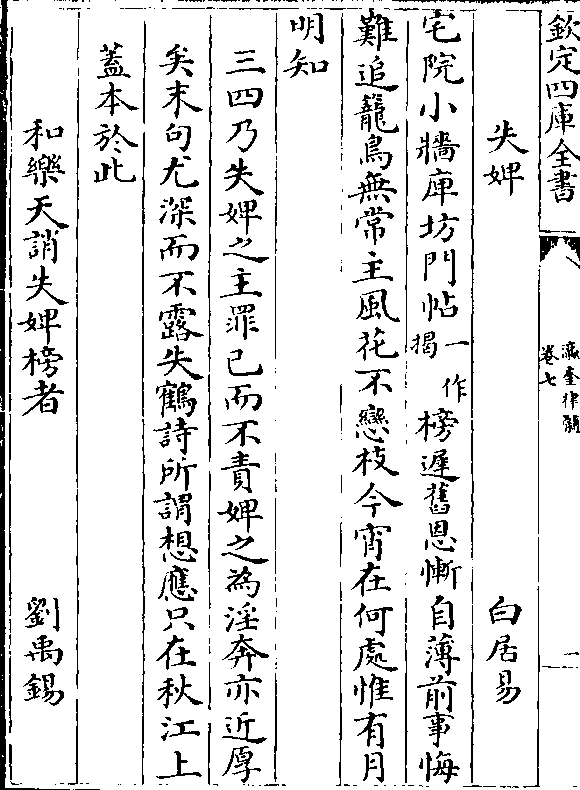 欽定四庫全書
瀛奎律髓
卷七
一
失婢 白居易
宅院小牆庳坊門帖一作揭榜遲舊恩慚自薄前事悔
難追籠鳥無常主風花不戀枝今宵在何處惟有月
明知
三四乃失婢之主罪己而不責婢之為淫奔亦近厚
矣末句尤深而不露失鶴詩所謂想應只在秋江上
蓋本於此
和樂天誚失婢榜者 劉禹錫